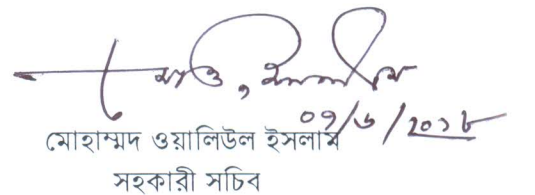 ০৭/৬/২০১৮
মোহাম্মদ ওয়ালিউল ইসলাম
সহকারী সচিব